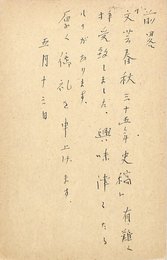 前略
文芸春秋三十五年史稿 有難く
拝受致しました。興味津々たる
ものがあります。
厚く御礼を申上げます。
五月十三日